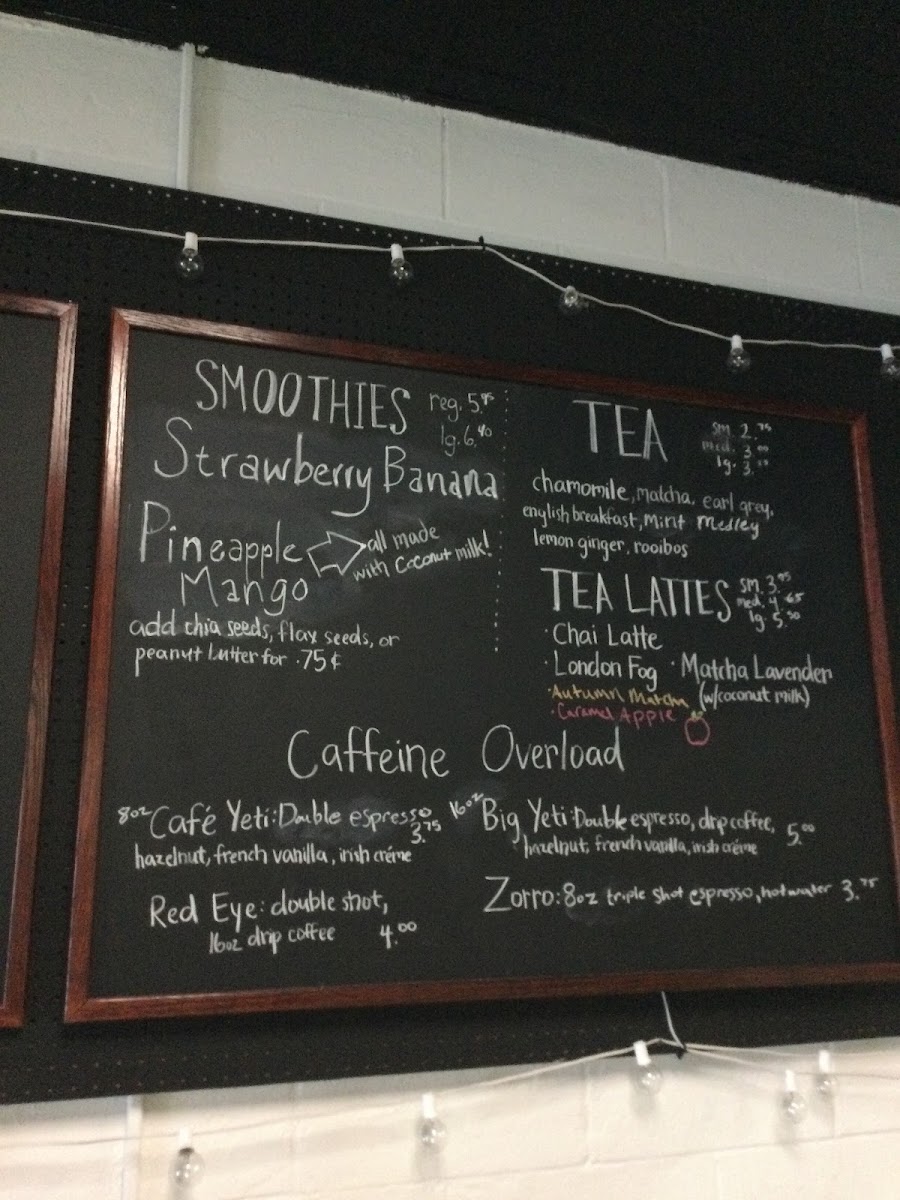 SMOOTHIES reg. 5.95
lg. 6.40
Strawberry Banana
Pineapple
Mango
all made
with Coconut milk!
add chia seeds, flax seeds, or
peanut butter for .75¢
TEA sm. 2.75
med. 3.00
lg. 3.
chamomile, matcha, earl grey,
english breakfast, Mint Medley
lemon ginger, rooibos
TEA LATTES sm. 3.95
med. 4.65
lg. 5.50
· Chai Latte
· London Fog · Matcha Lavender
(w/coconut milk)
· Autumn Matcha
· Caramel Apple
Caffeine Overload
8oz Café Yeti: Double espresso,
3.75
hazelnut, french vanilla, irish créme
Red Eye: double shot,
16oz drip coffee 4.00
16oz Big Yeti: Double espresso, drip coffee,
hazelnut, french vanilla, irish créme 5.00
Zorro: 8oz triple shot espresso, hot water 3.75